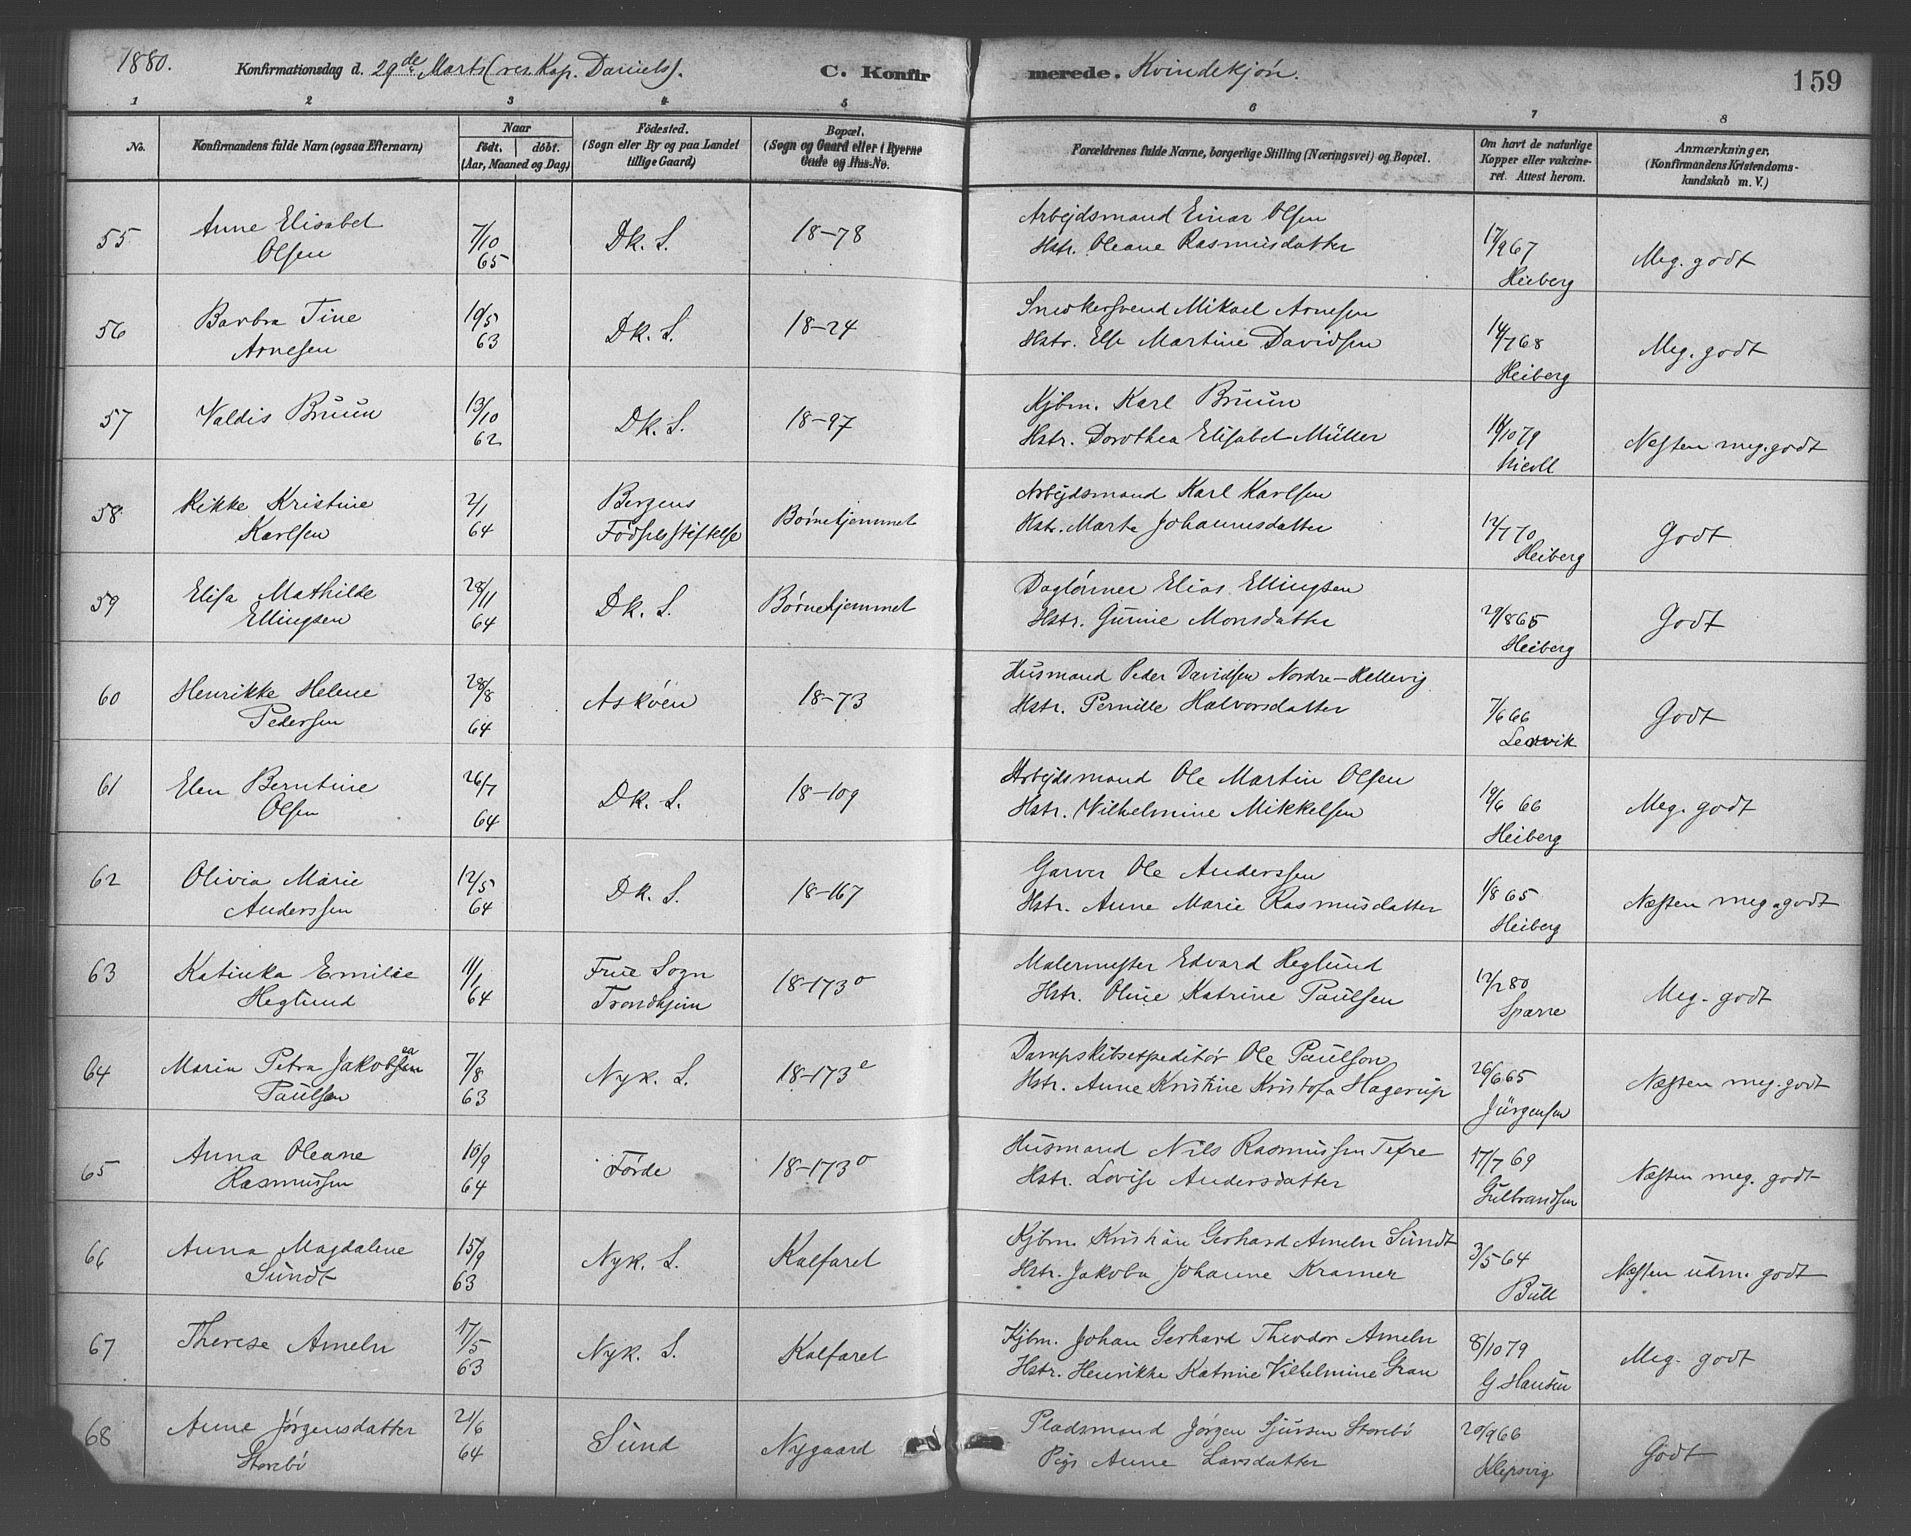 1880. Konfirmationsdag d. 29de Marts (res Kap. Daniels). C. Konfirmerede. Kvindekjøn. 159
1 2 3 4 5 6 7 8
No. Konfirmandens fulde Navn (ogsaa Efternavn) Naar Födested. Bopæl. Forældrenes fulde Navne, borgerlige Stilling (Næringsvei) og Bopæl. Om havt de naturlige Kopper eller vakcineret. Attest herom. Anmærkninger, (Konfirmandens Kristendomskundskab m. V.)
födt. döbt. (Aar, Maaned og Dag) (Sogn eller By og paa Landet tillige Gaard) (Sogn og Gaard eller i Byerne Gade og Hus-No.
55 Anne Elisabet Olsen 7/10 65 Dk. S. 18-78 Arbejdsmand Einar Olsen
Hstr. Oleane Rasmusdatter 17/9 67 Heiberg Meg. godt
56 Barbra Tine Arnesen 19/5 63 Dk. S. 18-24 Snedkersvend Mikael Arnesen
Hstr. Else Martine Davidsen 14/7 68 Heiberg Meg. godt
57 Valdis Bruun 13/10 62 Dk. S. 18-97 Kjbm. Karl Bruun
Hstr. Dorothea Elisabet Müller 16/10 79 Nicoll Næsten meg. godt
58 Rikke Kristine Karlsen 2/1 64 Bergens Födselsstiftelse Børnehjemmet Arbejdsmand Karl Karlsen
Hstr. Marta Johannesdatter 12/7 70 Heiberg Godt
59 Elisa Mathilde Ellingsen 28/11 64 Dk. S. Børnehjemmet Daglönner Elias Ellingsen
Hstr. Gurine Monsdatter 29/8 65 Heiberg Godt
60 Henrikke Helene Pedersen 28/8 64 Askøen 18-73 Husmand Peder Davidsen Nordre-Hellevig
Hstr. Pernille Halvorsdatter 7/6 66 Godt
61 Elen Berntine Olsen 26/7 64 Dk. S. 18-109 Arbejdsmand Ole Martin Olsen
Hstr. Vilhelmine Mikkelsen 19/6 66 Heiberg Meg. godt
62 Olivia Marie Anderssen 12/5 64 Dk. S. 18-167 Garver Ole Anderssen
Hstr. Anne Marie Rasmusdatter 1/8 65 Heiberg Næsten meg. godt
63 Katinka Emilie Heglund 11/1 64 Frue Sogn Trondhjem 18-173 o Malermester Edvard Heglund
Hstr. Oline Katrine Paulsen 12/2 80 Sparre Meg. godt
64 Maria Petra Jakobea Paulsen 7/8 63 Nyk. S. 18-173 e Dampskibsexpeditør Ole Paulson
Hstr. Anne Kristine Kristofa Hagerup 26/6 65 Jürgensen Næsten meg. godt
65 Anna Oleane Rasmussen 10/9 64 Förde 18-173 o Husmand Nils Rasmussen Tefre
Hstr. Lovise Andersdatter 17/7 69 Gulbrandsen Næsten meg. godt
66 Anna Magdalene Sundt 15/9 63 Nyk. S. Kalfaret Kjbm. Kristian Gerhard Ameln Sundt
Hstr. Jakoba Johanne Kramer 3/5 64 Bull Næsten udm. godt
67 Therese Ameln 17/5 63 Nyk. S. Kalfaret Kjbm. Johan Gerhard Theodor Ameln
Hstr. Henrikke Katrine Vilhelmine Gran 8/10 79 G Hansen Meg. godt
68 Anne Jørgensdatter Storebö 21/6 64 Sund Nygaard Pladsmand Jørgen Sjursen Storebö
Pige Anne Larsdatter 20/9 66 Klepsvig Godt